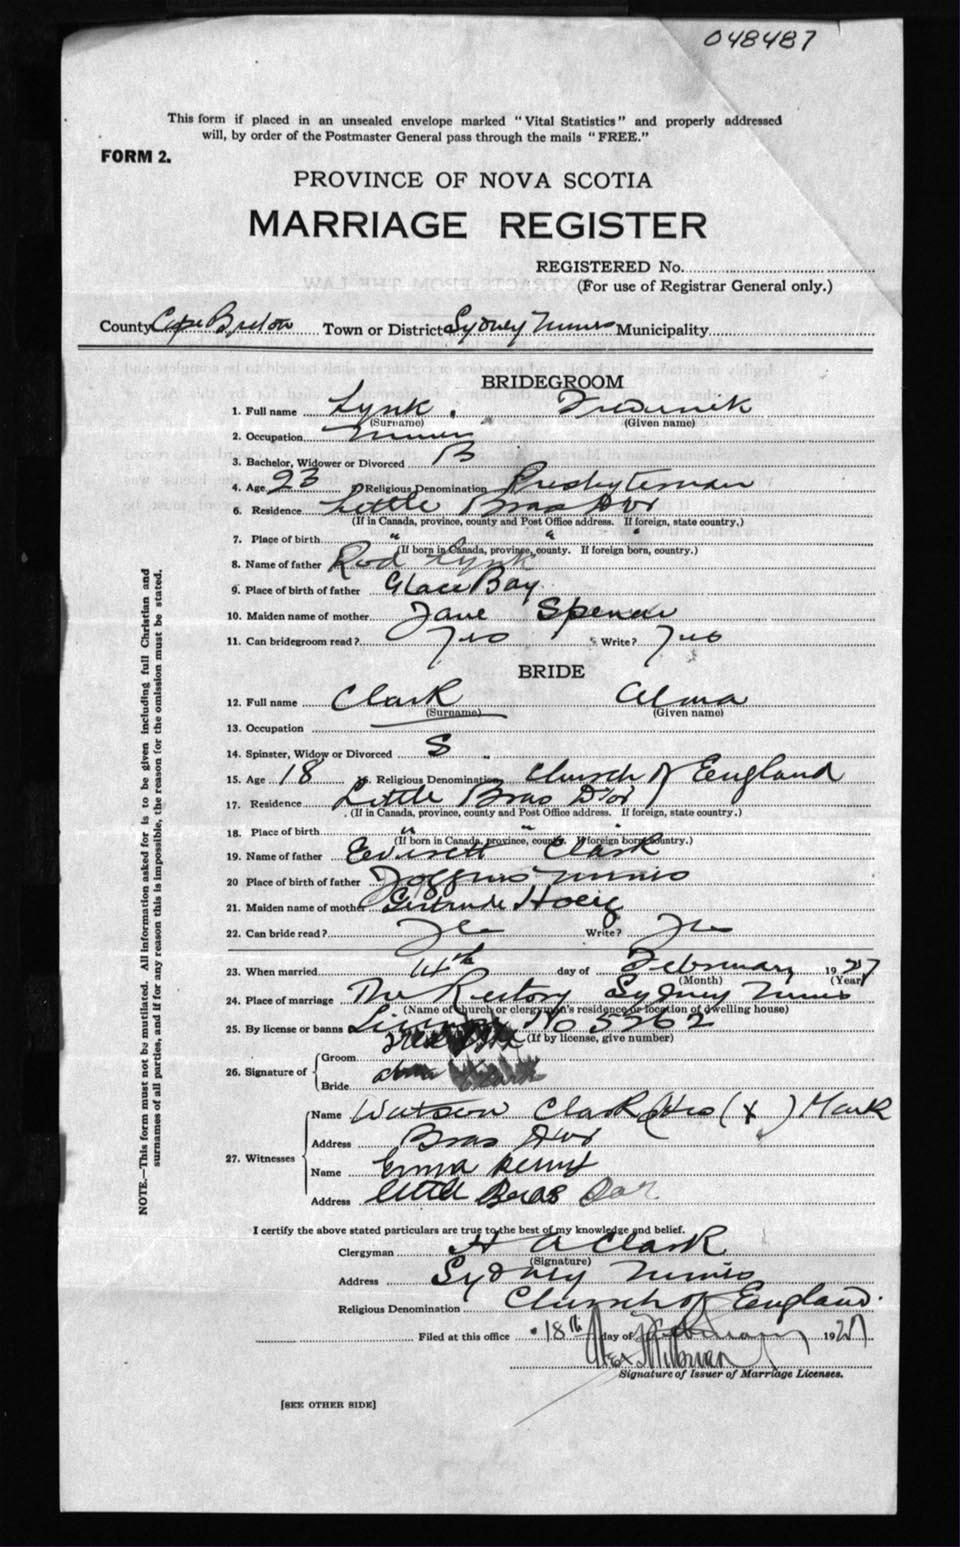 048487
This form if placed in an unsealed envelope marked "Vital Statistics" and properly addressed
will, by order of the Postmaster General pass through the mails "FREE."
FORM 2.
PROVINCE OF NOVA SCOTIA
MARRIAGE REGISTER
REGISTERED No.
(For use of Registrar General only.)
County Cape Breton Town or District Sydney Mines Municipality
BRIDEGROOM
1. Full name Lynk Frederick
(Surname) (Given name)
2. Occupation Miner
3. Bachelor, Widower or Divorced B
4. Age 23 Religious Denomination Presbyterian
6. Residence Little Bras d'or
(If in Canada, province, county and Post Office address. If foreign, state country.)
7. Place of birth " " "
(If born in Canada, province, county. If foreign born, country.)
8. Name of father Rod Lynk
9. Place of birth of father Glace Bay
10. Maiden name of mother Jane Spencer
11. Can bridegroom read? Yes Write? Yes
BRIDE
12. Full name Clark Alma
(Surname) (Given name)
13. Occupation
14. Spinster, Widow or Divorced S
15. Age 18 16. Religious Denomination Church of England
17. Residence Little Bras D'or
(If in Canada, province, county and Post Office address. If foreign, state country.)
18. Place of birth " " "
(If born in Canada, province, county. If foreign born, country.)
19. Name of father Everett Clark
20 Place of birth of father Joggins Mines
21. Maiden name of mother Gertrude Hoeig
22. Can bride read? Yes Write? Yes
23. When married 14th day of February 1927
(Month) (Year)
24. Place of marriage The Rectory Sydney Mines
(Name of church or clergyman's residence or location of dwelling house)
25. By license or banns License No 5262
(If by license, give number)
26. Signature of
Groom
Bride Alma Clark
27. Witnesses
Name Watson Clark His (x) Mark
Address Bras d'or
Name Emma
Address Little Bras Dor
I certify the above stated particulars are true to the best of my knowledge and belief.
Clergyman H A Clark
(Signature)
Address Sydney Mines
Religious Denomination Church of England.
Filed at this office 18th day of February 1927
Signature of Issuer of Marriage Licenses.
[SEE OTHER SIDE]
NOTE.—This form must not be mutilated. All information asked for is to be given including full Christian and
surnames of all parties, and if for any reason this is impossible, the reason for the omission must be stated.